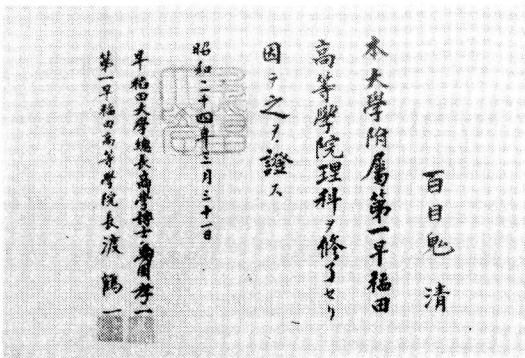 百目鬼 清
本大學附属第一早稲田
高等學院理科ヲ修了セリ
因テ之ヲ證ス
昭和二十四年三月三十一日
早稲田大學總長商學博士島田孝一
第一早稲田高等學院長渡 鶴一